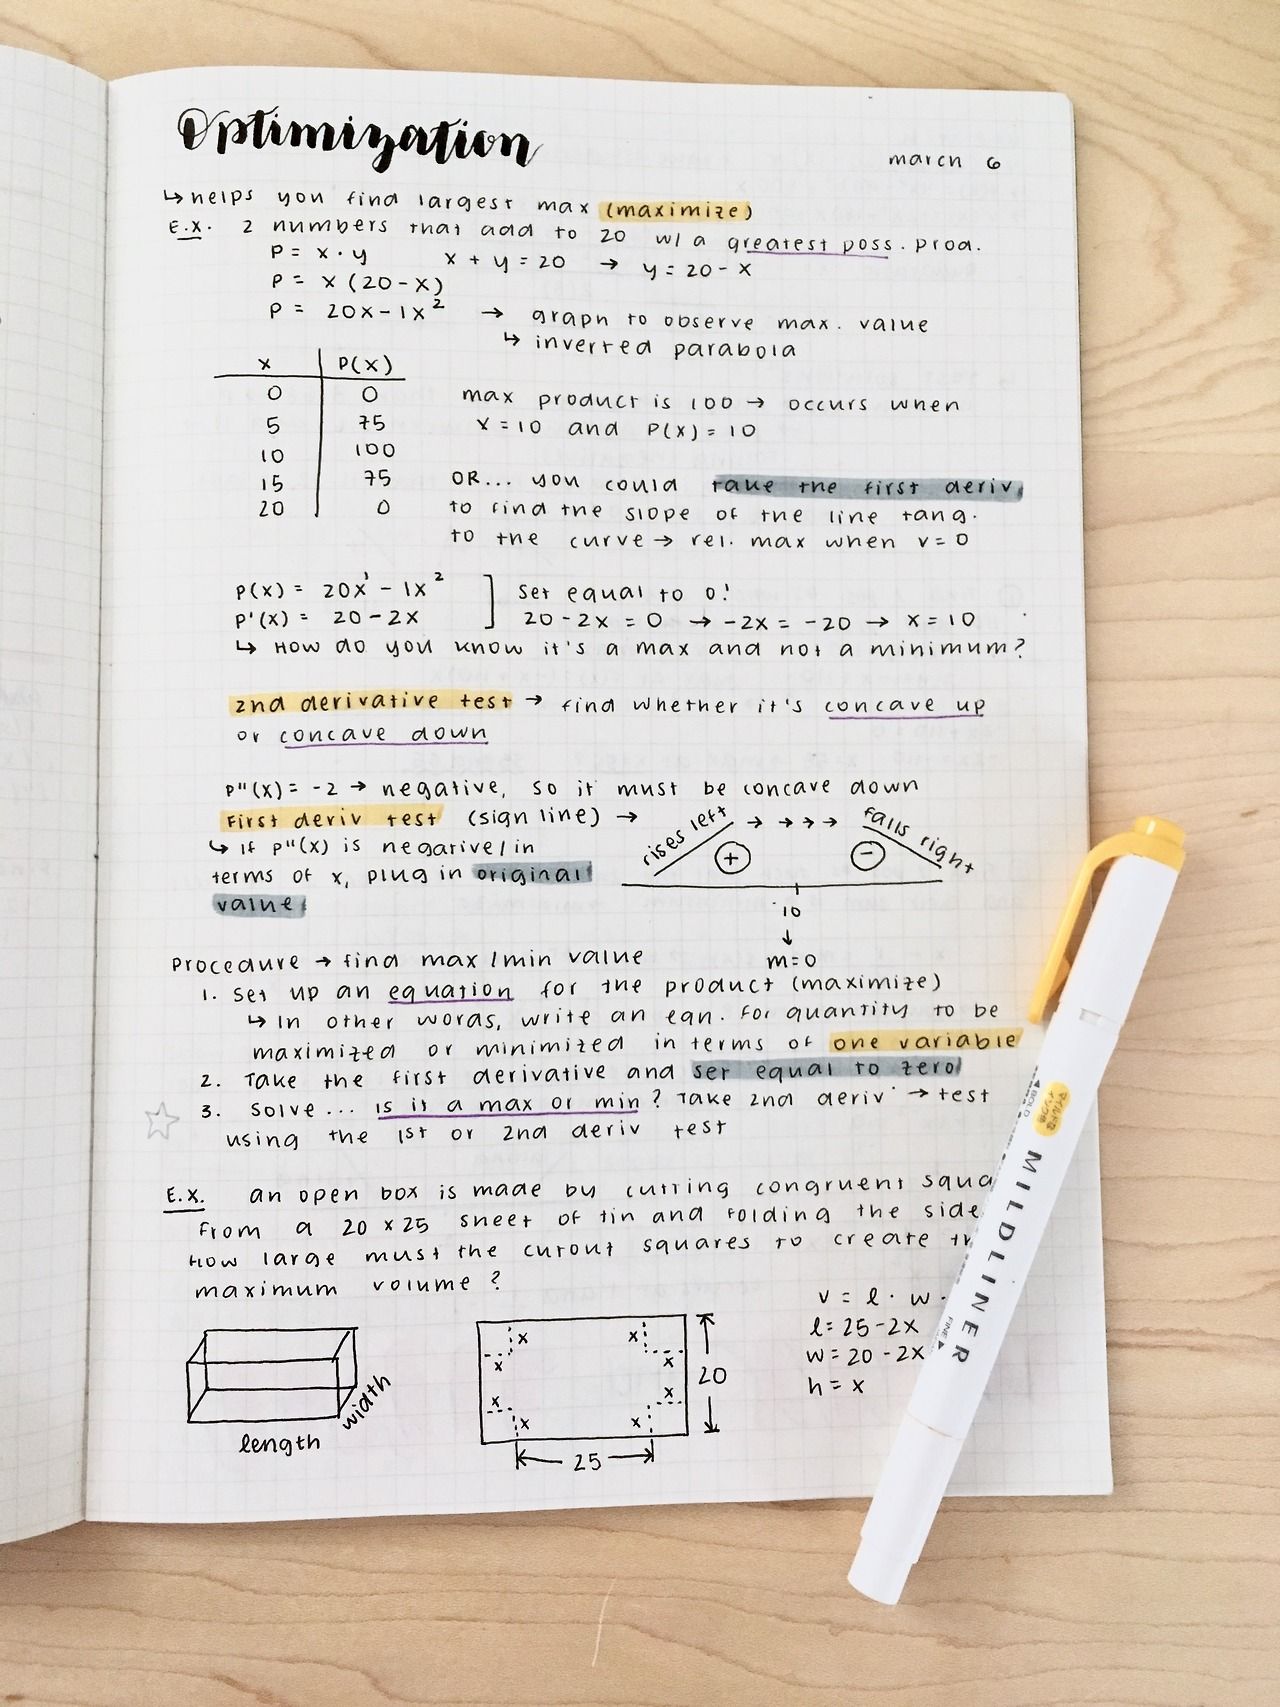 Optimization
march 6
↳ helps you find largest max (maximize)
E.X. 2 numbers that add to 20 w/ a greatest poss. prod.
P = x · y x + y = 20 → y = 20 - x
P = x (20 - x)
P = 20x - 1x² → graph to observe max. value
↳ inverted parabola
x P(x)
0 0
5 75
10 100
15 75
20 0
max product is 100 → occurs when
x = 10 and P(x) = 10
OR... you could take the first deriv.
to find the slope of the line tang.
to the curve → rel. max when v = 0
P(x) = 20x¹ - 1x² ] set equal to 0!
P'(x) = 20 - 2x 20 - 2x = 0 → -2x = -20 → x = 10
↳ How do you know it's a max and not a minimum?
2nd derivative test → find whether it's concave up
or concave down
P"(x) = -2 → negative, so it must be concave down
First deriv test (sign line) →
↳ If P"(x) is negative/in
terms of x, plug in original
value
rises left → → → → falls right
+ -
10
↓
m=0
Procedure → find max/min value
1. Set up an equation for the product (maximize)
↳ In other words, write an eqn. for quantity to be
maximized or minimized in terms of one variable
2. Take the first derivative and set equal to zero
3. Solve... is it a max or min? Take 2nd deriv → test
using the 1st or 2nd deriv test
E.X. an open box is made by cutting congruent squa
from a 20 x 25 sheet of tin and folding the side
How large must the cutout squares to create th
maximum volume?
v = l · w ·
l = 25 - 2x
w = 20 - 2x
h = x
length
width
x x
x x
x x
x x
20
25
MILDLINER
BOLD
FINE